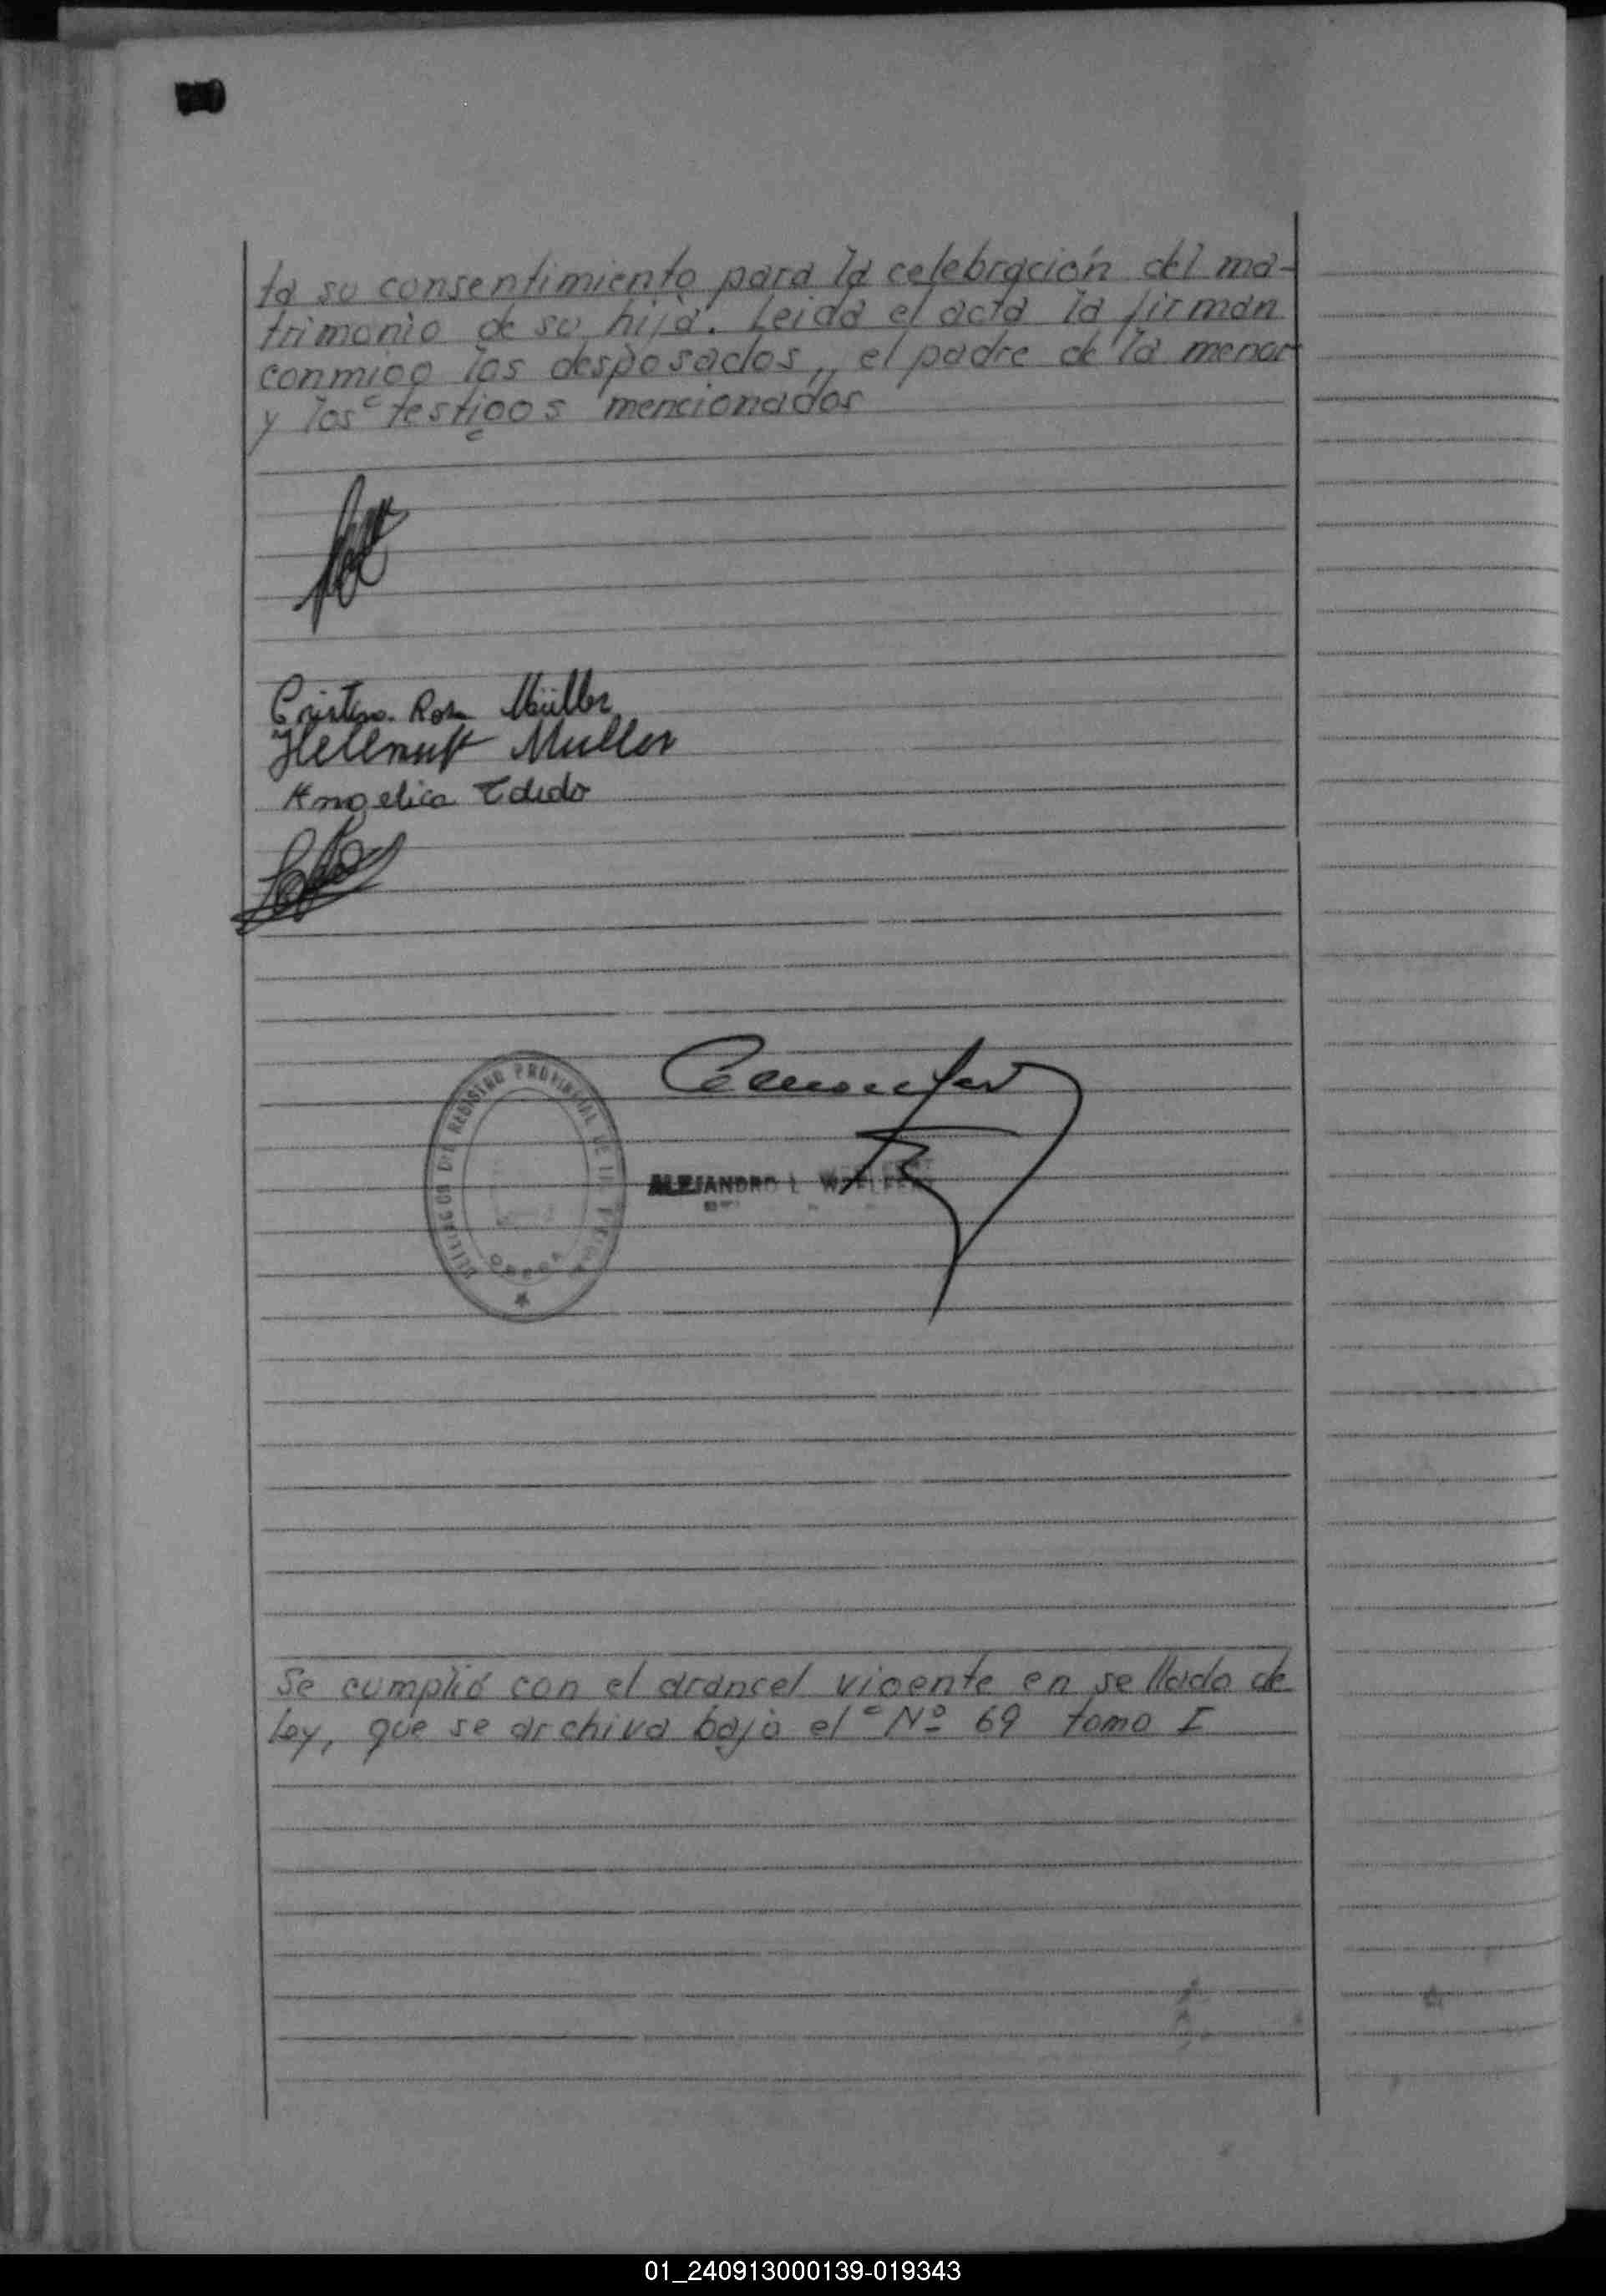 ta su consentimiento para la celebración del ma-
trimonio de su hija. Leida el acta la firman
conmigo los desposados, el padre de la menor
y los testigos mencionados
Cristina Rosa Müller
Hellmuth Muller
Angelica Toledo
DEL REGISTRO PROVINCIAL DE LAS
ALEJANDRO L
Se cumplió con el arancel vigente en sellado de
ley, que se archiva bajo el Nº 69 tomo I
01_240913000139-019343